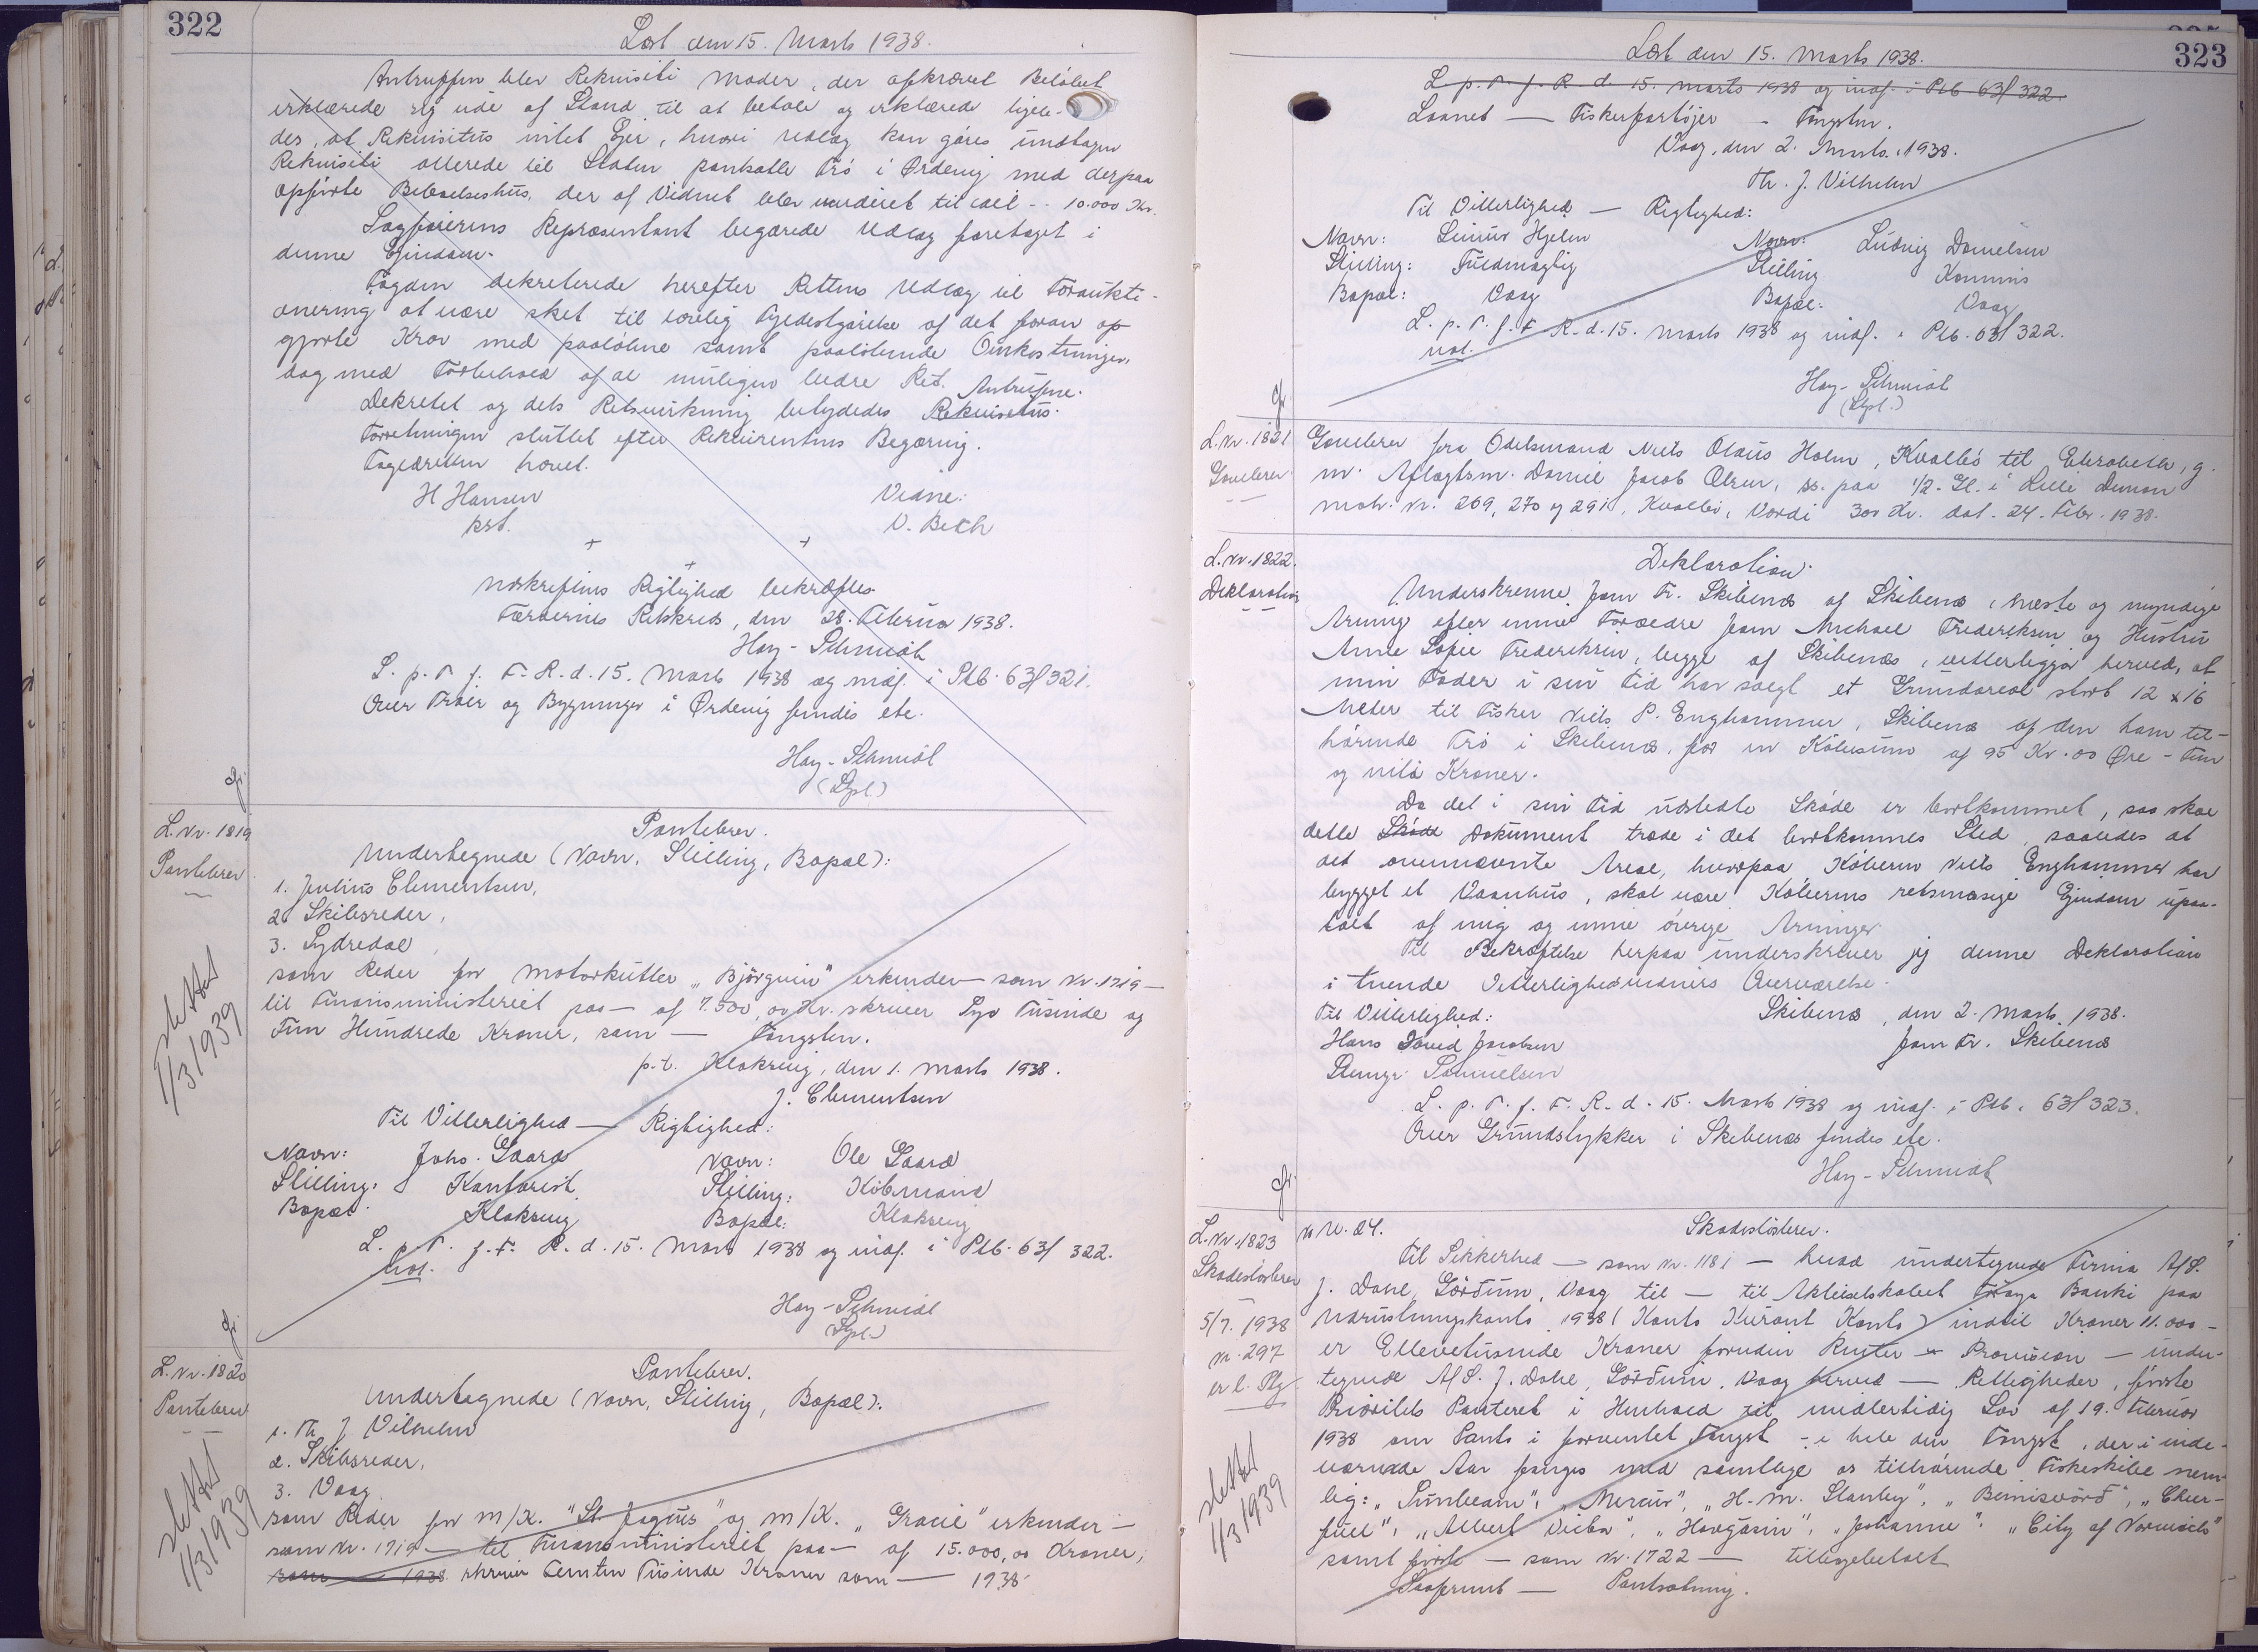 322
Læst den 15. Marts 1938.
Antruffen blev Rekvisiti Moder, der afkrævet Beløbet
erklærede sig ude af Stand til at betale og erklærede ligele-
des, at Rekvisitus intet Ejer, hvori Udlæg kan gøres undtagen
Rekvisiti allerede til Staten pantsatte Trö i Ørdevig med derpaa
opførte Beboelseshus, der af Vidnet blev vurderet til ialt -- 10.000 Kr.
Sagførerens Repræsentant begærede Udlæg foretaget i
denne Ejendom.
Fogden dekreterede herefter Rettens Udlæg til Forauktio-
onering at være sket til lovlig Fyldestgørelse af det foran op
gjorte Krav med paaløbne samt paaløbende Omkostninger,
dog med Forbehold af al muligen bedre Ret.
Dekretet og dets Retsvirkning betydedes Rekvisitus. Antrufne.
Forretningen sluttet efter Rekvirentens Begæring.
Fogedretten hævet.
H Hansen Vidne:
kst. V. Bech
+ + +
Udskriftens Rigtighed bekræftes
Færøernes Retskreds, den 28. Februar 1938.
Hay-Schmidt
L. p. T. f. F. R. d. 15. Marts 1938 og indf. i Ptb. 63f 321.
Over Tröer og Bygninger i Ørdevig findes ete.
Hay-Schmidt
(Spl.)
Gr.
L. Nr. 1819
Pantebrev
slettet
1/3 1939
Pantebrev.
Undertegnede (Navn, Stilling, Bopæl):
1. Julius Clementsen,
2. Skibsreder,
3. Sydredal,
som Reder for Motorkutter „Björgvin" erkender — som Nr. 1719 —
til Finansministeriet paa — af 7.500,00 Kr. skriver Syv Tusinde og
Fem Hundrede Kroner, som — Fangsten.
p.t. Klaksvig, den 1. Marts 1938.
J. Clementsen
Til Vitterlighed — Rigtighed:
Navn: Johs. Gaard Navn: Ole Gaard
Stilling: Kontorist Stilling: Købmand
Bopæl: Klaksvig Bopæl: Klaksvig
L. p. T. f. F. R. d. 15. Marts 1938 og indf. i Ptb. 63f 322.
Hay-Schmidt
(Spl.)
Gr.
L. Nr. 1820
Pantebrev
slettet
1/3 1939
Pantebrev.
Undertegnede (Navn, Stilling, Bopæl):
1. Th J Vilhelm
2. Skibsreder,
3. Vaag
som Reder for M/K. "St. Jaques" og M/K. „Gracie" erkender —
som Nr. 1719 — til Finansministeriet paa — af 15.000,00 Kroner,
som — 1938 skriver Femten Tusinde Kroner som — 1938
323
Læst den 15. Marts 1938.
L p. T. f. R. d. 15. Marts 1938 og indf. i Ptb 63f 322.
Laanet — Fiskerfartøjer - Fangsten.
Vaag, den 2. Marts 1938.
Th. J. Vilhelm
Til Vitterlighed — Rigtighed:
Navn: Hjelm Navn: Ludvig Danielsen
Stilling: Fuldmægtig Stilling Kommis
Bopæl: Vaag Bopæl: Vaag
L. p. T. f. F. R. d. 15. Marts 1938 og indf. i Ptb. 63f 322.
Hay-Schmidt
(Spl.)
Gr.
L. Nr. 1821
Gavebrev
Gavebrev fra Odelsmand Niels Olaus Holm, Kvalbö til Elisabeth, g.
m. Aftægtsm. Daniel Jacob Olsen, ss. paa 1/2 Gl. i Lille Dimon
matr. Nr. 269, 270 og 291, Kvalbö, Værdi 300 Kr. dat. 24. Febr. 1938.
L. Nr. 1822.
Deklaration
Deklaration.
Underskrevne Joen Fr. Skibenæs af Skibenæs, næste og myndige
Arving efter mine Forældre Joen Michael Frederiksen og Hustru
Anne Sofie Frederiksen, begge af Skibenæs, vitterliggør herved, at
min Fader i sin Tid har solgt et Grundareal stort 12 x 16
Meter til Fisker Niels P. Enghammer, Skibenæs af den ham til-
hørende Trö i Skibenæs, for en Købesum af 95 Kr. 00 Øre - Fem
og niti Kroner.
Da det i sin Tid udstedte Skøde er bortkommet, saa skal
dette Skøde Dokument træde i det bortkomnes Sted, saaledes at
det ovennævnte Areal, hvorpaa Køberen Niels Enghammer har
bygget et Vaanhus, skal være Køberens retsmæssige Ejendom upaa-
talt af mig og mine øvrige Arvinger.
Til Bekræftelse herpaa underskriver jeg denne Deklaration
i tvende Vitterlighedsvidners Overværelse.
Til Vitterlighed: Skibenæs, den 2. Marts 1938.
Hans David Jacobsen Joen Fr. Skibenæs
Samuelsen
L. p. T. f. F. R. d. 15. Marts 1938 og indf. i Ptb. 63f 323.
Over Grundstykker i Skibenæs findes ete.
Hay-Schmidt
Gr.
L. Nr. 1823
Skadesløsbrev
5/7. 1938
Nr. 297
slettet
1/3 1939
Nr. 24. Skadesløsbrev.
Til Sikkerhed — som Nr. 1181 — hvad undertegnede Firma A/S.
J. Dahl, Gördum, Vaag til — til Aktieselskabet Föroya Banki paa
Udrustningskonto 1938 (Konto Kurant Konto) indtil Kroner 11.000 —
er Ellevetusinde Kroner foruden Renter — Provision — under-
tegnede A/S. J. Dahl, Gördum, Vaag herved — Rettigheder, første
Prioritets Panteret i Henhold til midlertidig Lov af 19. Februar
1938 om Pant i forventet Fangst - i hele den Fangst, der i inde-
værende Aar fanges med samtlige os tilhørende Fiskeskibe nem-
lig: „Sunbeam", „Mercur", „H. M. Stanley", „Bernisvörd", „Cheer-
full", „Albert Victor", „Havgasin", „Johanne", „City of Norwich"
samt først — som Nr. 1722 — tillægsbetalt
Saafremt — Pantsætning.